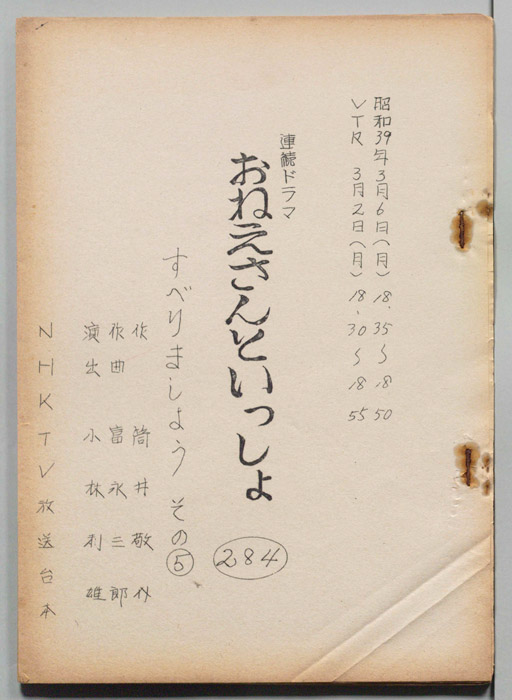 昭和39年3月6日（月）18.35〜18.50
VTR 3月2日（月）18.30〜18.55
連続ドラマ
おねえさんといっしょ
284
すべりましょう その⑤
作 筒井敬介
作曲 冨永三郎
演出 小林利雄
NHKTV放送台本